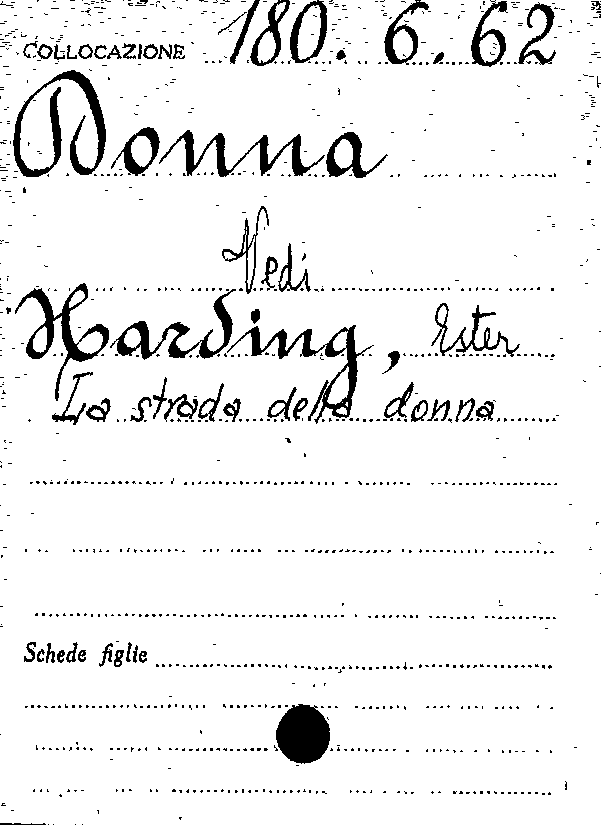 COLLOCAZIONE 180.6.62
Donna
Vedi
Harding, Ester
La strada della donna
Schede figlie